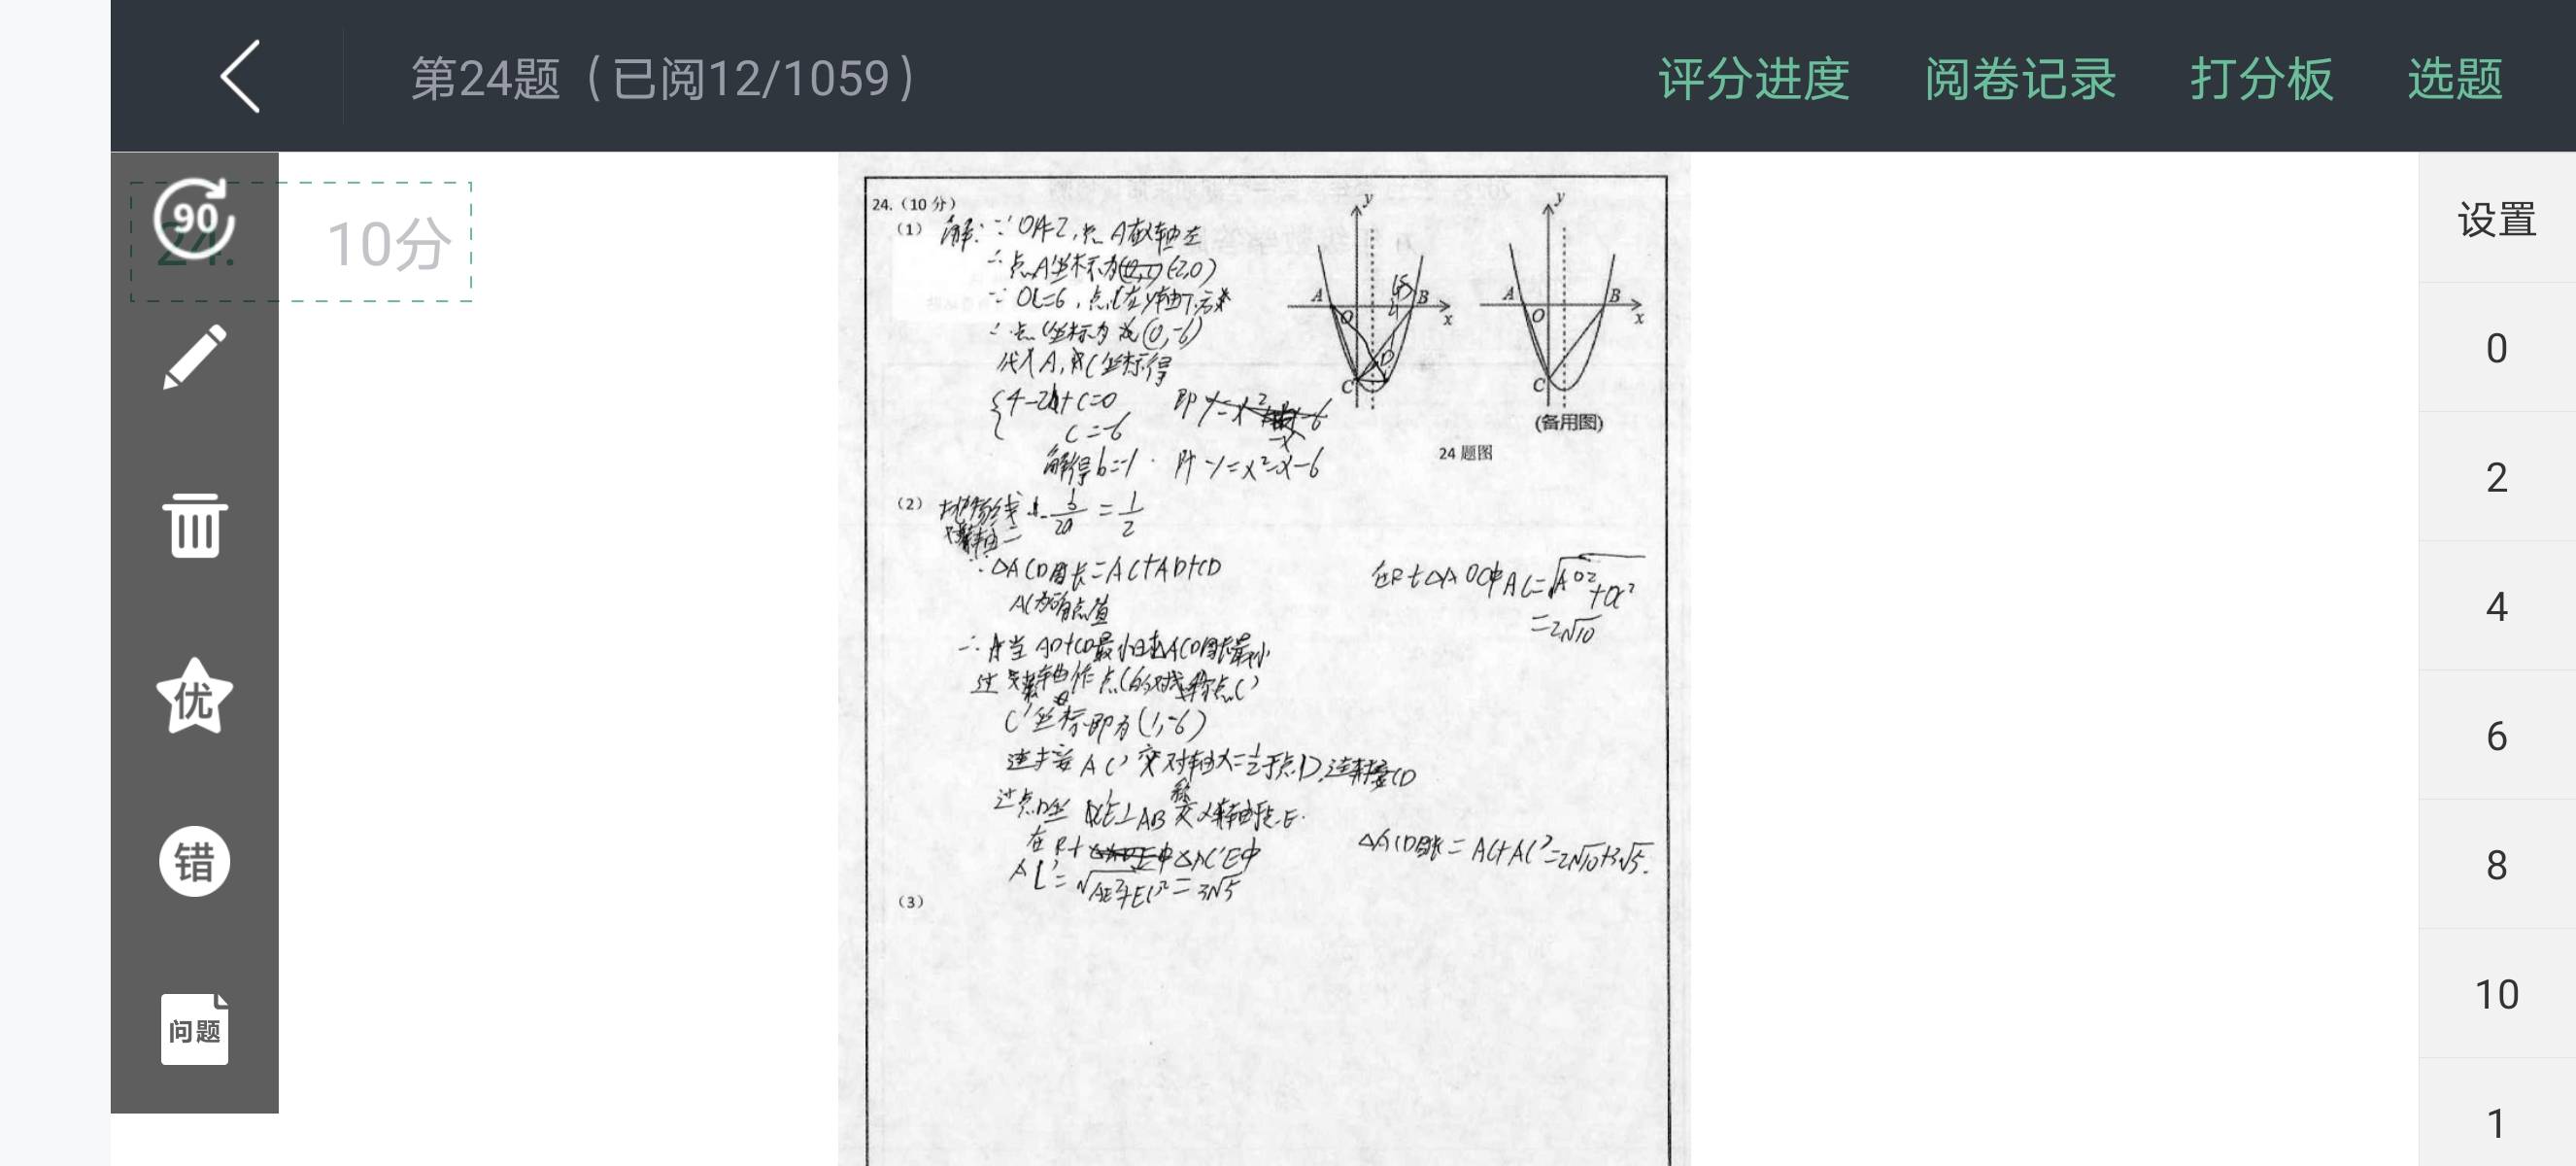 第24题（已阅12/1059）
评分进度 阅卷记录 打分板 选题
90
24. 10分
优
错
问题
设置
0
2
4
6
8
10
1
24.（10 分）
（1） 解：∵OA=2，点A在x轴左
∴点A坐标为(-2,0)
∵OC=6，点C在y轴下方
∴点C坐标为(0,-6)
代入A，C坐标得
4-2b+c=0
c=-6
即y=x²-6
解得b=-1. 即y=x²-x-6
y
A
O
B
x
C
D
y
A
O
B
x
C
(备用图)
24 题图
（2） 抛物线 -b/2a =1/2
对称轴=
∵△ACD周长=AC+AD+CD
AC为
∴当AD+CD最小时△ACD周长最小
过对称轴作点C的对称点C'
C'坐标即为(1,-6)
连接AC'交对称轴x=1/2于点D，连接CD
过点 C'E⊥AB交x轴于点E.
在Rt△AC'E中
AC'=√AE²+EC'²=3√5
在Rt△AOC中AC=√AO²+OC²
=2√10
△ACD周长=AC+AC'=2√10+3√5.
（3）